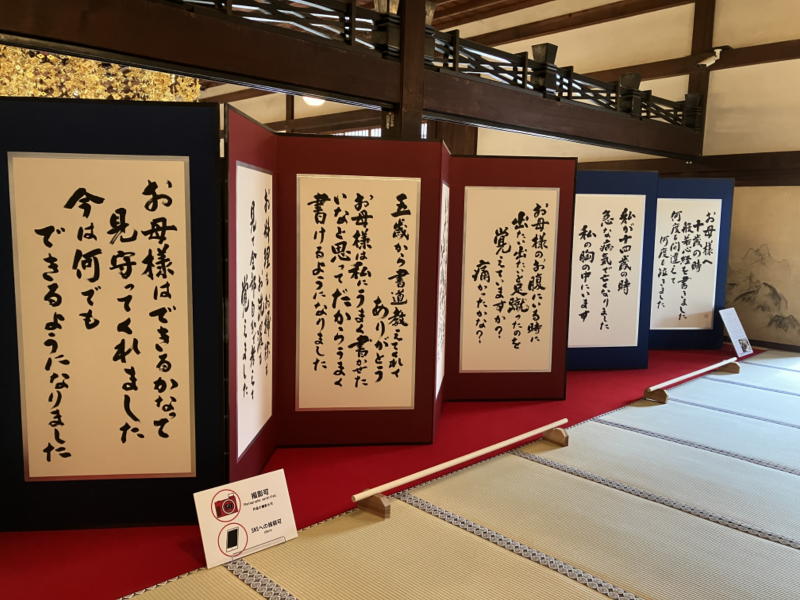 お母様へ
十歳の時
般若心経を書きました
何度も間違えて
何度も泣きました
私が十四歳の時
急な病気で亡くなりました
私の胸の中にいます
お母様のお腹にいる時に
出たい出たいと足蹴ったのを
覚えていますか？
痛かたかな？
五歳から書道教えてくれて
ありがとう
お母様は私にうまく書かせた
いなと思ってだからうまく
書けるようになりました
覚えました
お母様はできるかなって
見守ってくれました
今は何でも
できるようになりました
撮影可
SNSへの投稿可